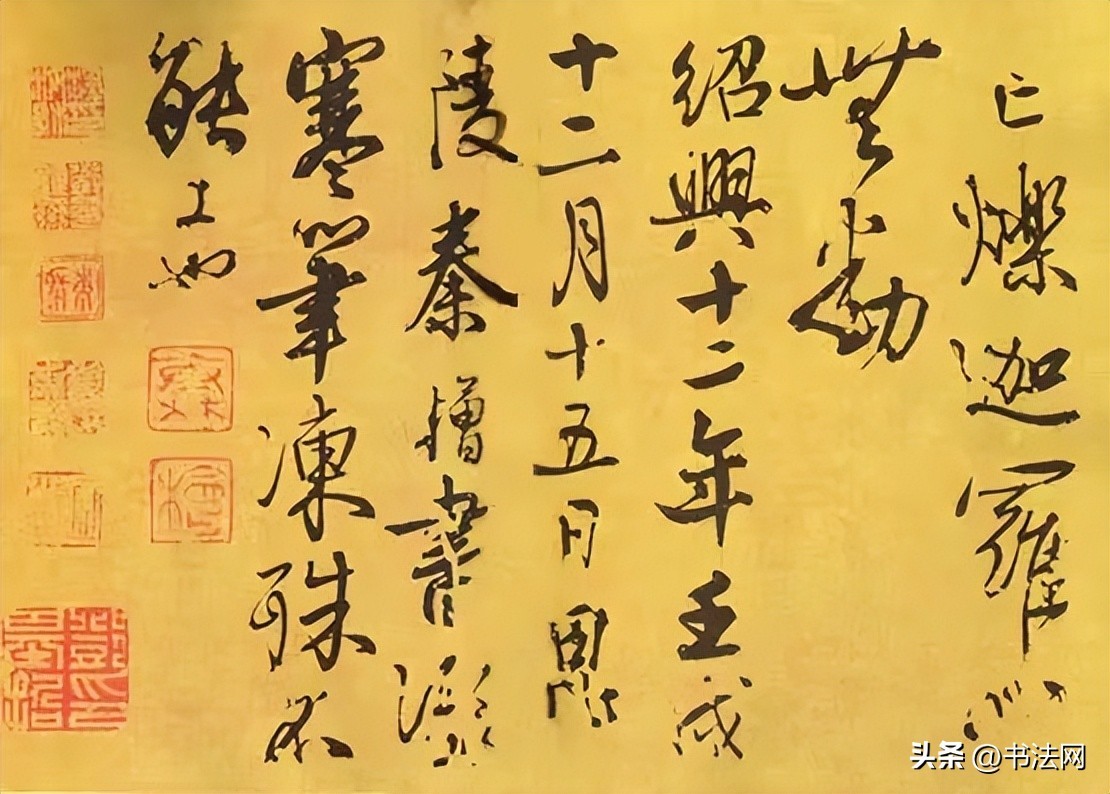 亡爍迦羅心
無動
紹興十二年壬戌
十二月十五日
陵秦檜書深
寒筆凍殊不
能工也
头条 @书法网